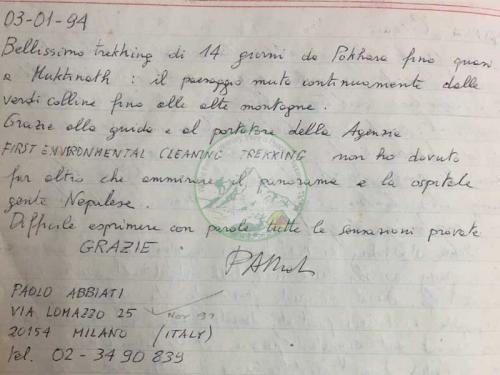 03-01-94
Bellissimo trekking di 14 giorni da Pokhara fino quasi
a Muktinath : il paesaggio muta continuamente dalle
verdi colline fino alle alte montagne.
Grazie alla guida e al portatore della Agenzia
FIRST ENVIRONMENTAL CLEANING TREKKING non ho dovuto
far altro che ammirare il panorama e la ospitale
gente Nepalese.
Difficile esprimere con parole tutte le sensazioni provate
GRAZIE
PAOLO ABBIATI
VIA LOMAZZO 25
20154 MILANO (ITALY)
tel. 02-3490839